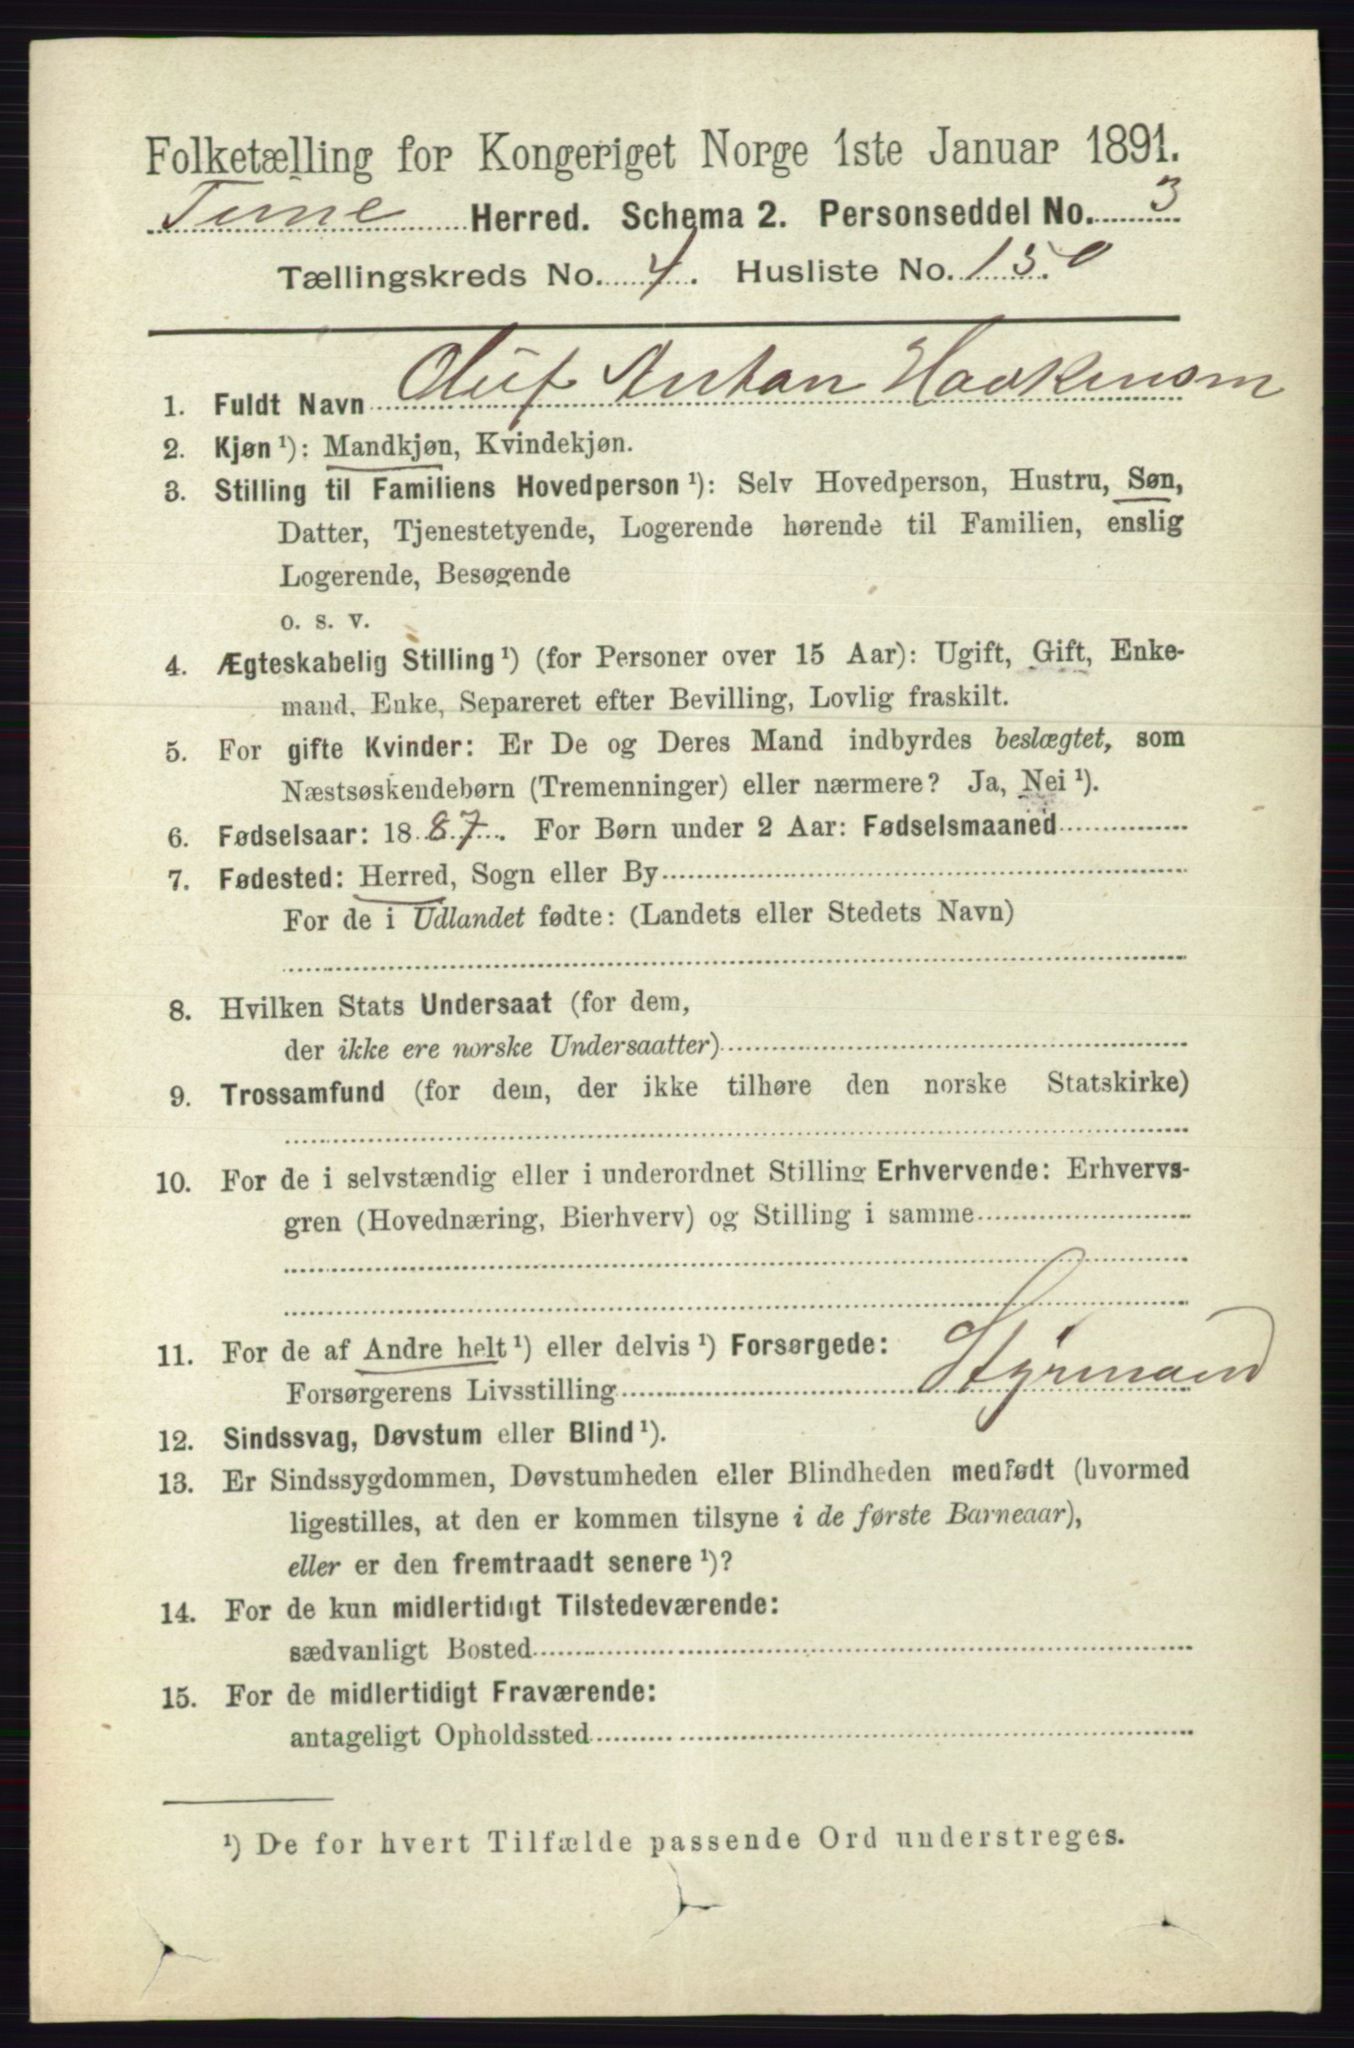 Folketælling for Kongeriget Norge 1ste Januar 1891.
Tune Herred. Schema 2. Personseddel No. 3
Tællingskreds No. 4. Husliste No. 150
1. Fuldt Navn Oluf Anton Haakensen
2. Kjøn ¹): Mandkjøn, Kvindekjøn.
3. Stilling til Familiens Hovedperson ¹): Selv Hovedperson, Hustru, Søn,
Datter, Tjenestetyende, Logerende hørende til Familien, enslig
Logerende, Besøgende
o. s. v.
4. Ægteskabelig Stilling ¹) (for Personer over 15 Aar): Ugift, Gift, Enke-
mand, Enke, Separeret efter Bevilling, Lovlig fraskilt.
5. For gifte Kvinder: Er De og Deres Mand indbyrdes beslægtet, som
Næstsøskendebørn (Tremenninger) eller nærmere? Ja, Nei ¹).
6. Fødselsaar: 1887. For Børn under 2 Aar: Fødselsmaaned
7. Fødested: Herred, Sogn eller By
For de i Udlandet fødte: (Landets eller Stedets Navn)
8. Hvilken Stats Undersaat (for dem,
der ikke ere norske Undersaatter)
9. Trossamfund (for dem, der ikke tilhøre den norske Statskirke)
10. For de i selvstændig eller i underordnet Stilling Erhvervende: Erhvervs-
gren (Hovednæring, Bierhverv) og Stilling i samme
11. For de af Andre helt ¹) eller delvis ¹) Forsørgede:
Forsørgerens Livsstilling Styrmand
12. Sindssvag, Døvstum eller Blind ¹).
13. Er Sindssygdommen, Døvstumheden eller Blindheden medfødt (hvormed
ligestilles, at den er kommen tilsyne i de første Barneaar),
eller er den fremtraadt senere ¹)?
14. For de kun midlertidigt Tilstedeværende:
sædvanligt Bosted
15. For de midlertidigt Fraværende:
antageligt Opholdssted
¹) De for hvert Tilfælde passende Ord understreges.